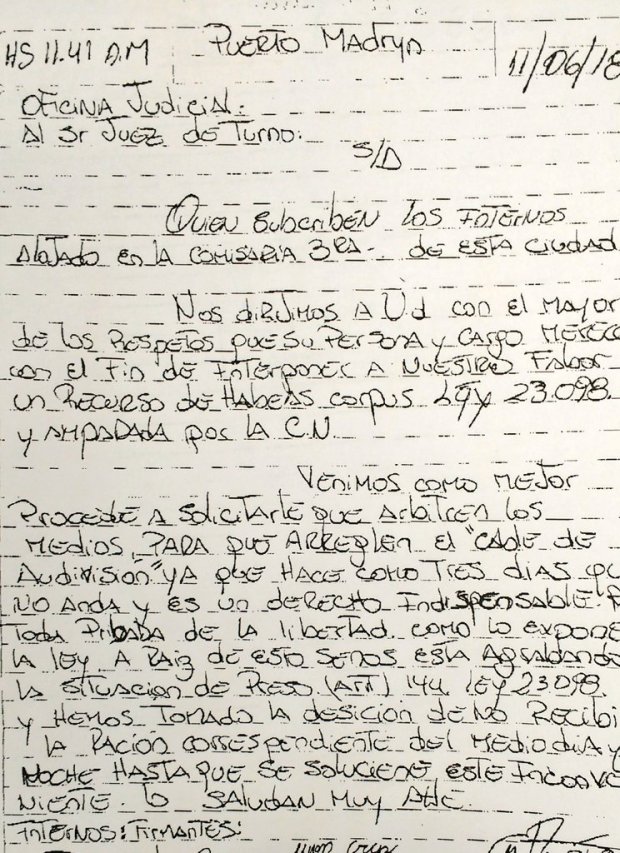 HS 11.41 A.M
Puerto Madryn
11/06/18
Oficina Judicial:
Al Sr Juez de Turno:
S/D
Quien subscriben los internos
alojado en la comisaria 3ra.- de esta ciudad
Nos dirijimos a Ud con el mayor
de los respetos que su persona y cargo merece
con el fin de interponer a nuestro fabor
un recurso de habeas corpus Ley 23.098.
y amparada por la C.N
Venimos como mejor
procede a solicitarle que arbitren los
medios, para que arreglen el "cable de
audivisión" ya que hace como tres dias qu
no anda y es un derecho indispensable. P
toda pribada de la libertad como lo expone
la ley. A raiz de esto senos esta agrabando
la situacion de preso (art) 144. ley 23.098.
y hemos tomado la desición de no recibi
la ración correspondiente del mediodia y
noche hasta que se solucione este inconve
niente. lo saludan muy ate.
Internos: Firmantes: